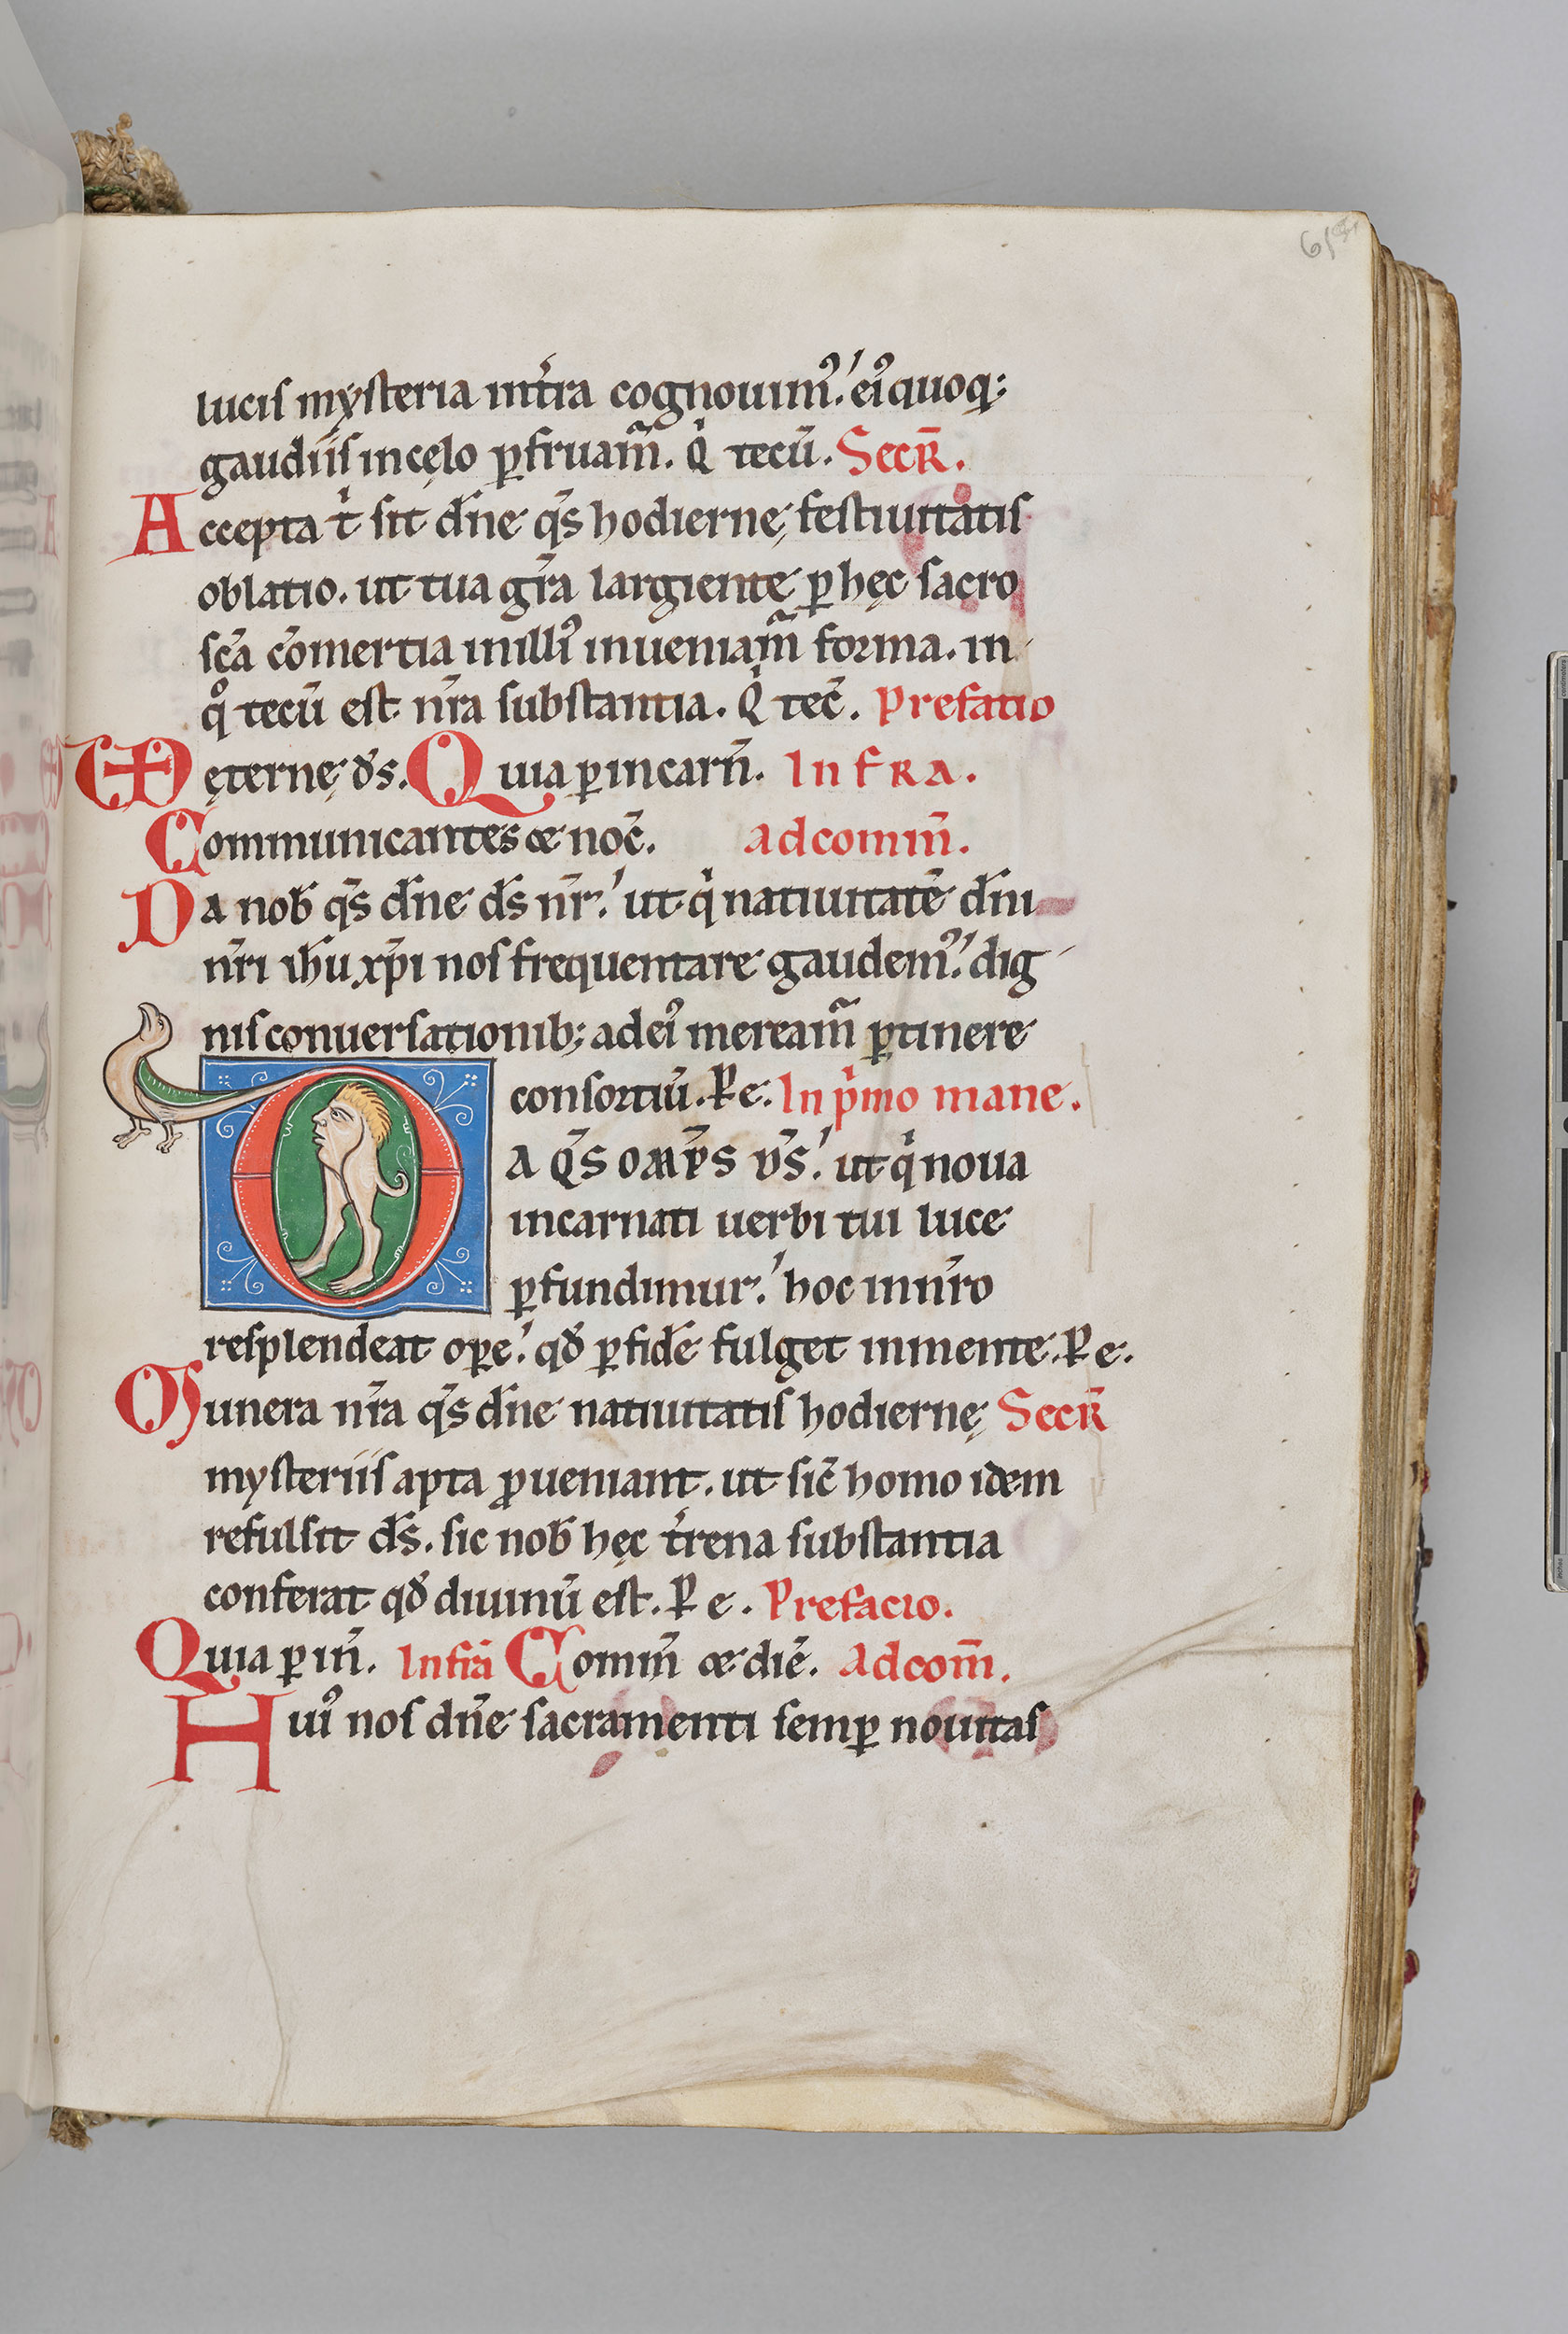 65
lucis mysteria int̄ra cognouimꝰ. eiꝰ quoq;
gaudiis in cęlo ꝑfruam̄. Q̇ tecū. Secr̄.
Accepta t̍ sit dn̄e qs̄ hodiernę festiuitatis
oblatio. ut tua gr̄a largiente ꝑ hęc sacro
sc̄a cōmertia in illiꝰ inueniam̄ forma. in
qͦ tecū est nr̄a substantia. Q̇ tec̄. Prefatio
VD ęternę ds̄. Quia ꝑ incarn̄. Infra.
Communicantes & noc̄. ad comm̄.
Da nob̄ qs̄ dn̄e ds̄ nr̄. ut q̍ natiuitatē dn̄i
nr̄i ihu xp̄i nos frequentare gaudemꝰ. dig
nis conuersationib; ad eiꝰ meream̄ ꝑtinere
consortiū. P e. In p̍mo mane.
DA QS̄ OMP̄S DS̄. ut q̍ noua
incarnati uerbi tui luce
ꝑfundimur. hoc in nr̄o
resplendeat oꝑe. qđ ꝑ fidē fulget in mente. P e.
Munera nr̄a qs̄ dn̄e natiuitatis hodiernę Secr̄
mysteriis apta ꝓueniant. ut sic̄ homo idem
refulsit ds̄. sic nob̄ hęc t̍rena substantia
conferat qđ diuinū est. P e. Prefacio.
Quia ꝑ in̄. Infra Comm̄ & diē. Ad com̄.
Huiꝰ nos dn̄e sacramenti semꝑ nouitas